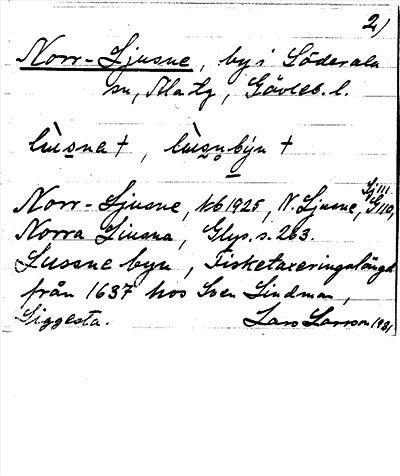 2)
Norr-Ljusne, by i Söderala
sn, Ala tg, Gävleb. l.
lùsnet, lùsnbýn †
Norr-Ljusne, kb 1925, N. Ljusne, Sj 111. G 110,
Norra Liusna, Glps. s. 263.
Lussne byn, Fisketaxeringslängd
från 1637 hos Sven Lindman,
Siggesta. Lars Larsson 1931